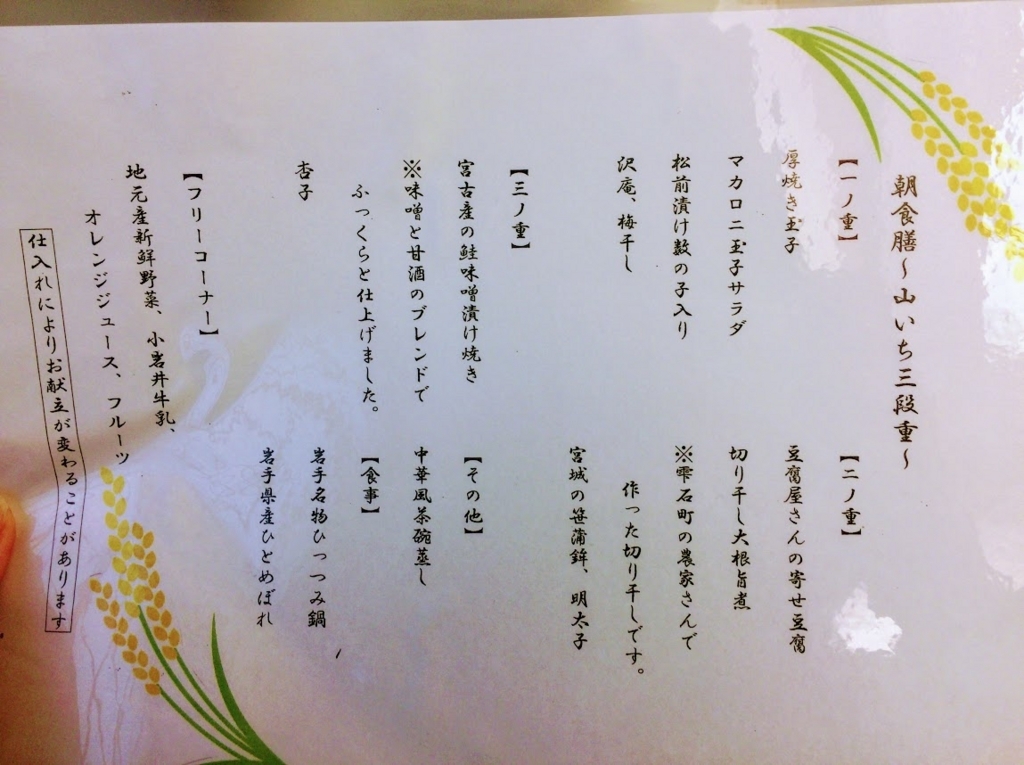 朝食膳～山いち三段重～
【一ノ重】
厚焼き玉子
マカロニ玉子サラダ
松前漬け数の子入り
沢庵、梅干し
【二ノ重】
豆腐屋さんの寄せ豆腐
切り干し大根旨煮
※雫石町の農家さんで
作った切り干しです。
宮城の笹蒲鉾、明太子
【三ノ重】
宮古産の鮭味噌漬け焼き
※味噌と甘酒のブレンドで
ふっくらと仕上げました。
杏子
【その他】
中華風茶碗蒸し
【食事】
岩手名物ひっつみ鍋
岩手県産ひとめぼれ
【フリーコーナー】
地元産新鮮野菜、小岩井牛乳、
オレンジジュース、フルーツ
仕入れによりお献立が変わることがあります